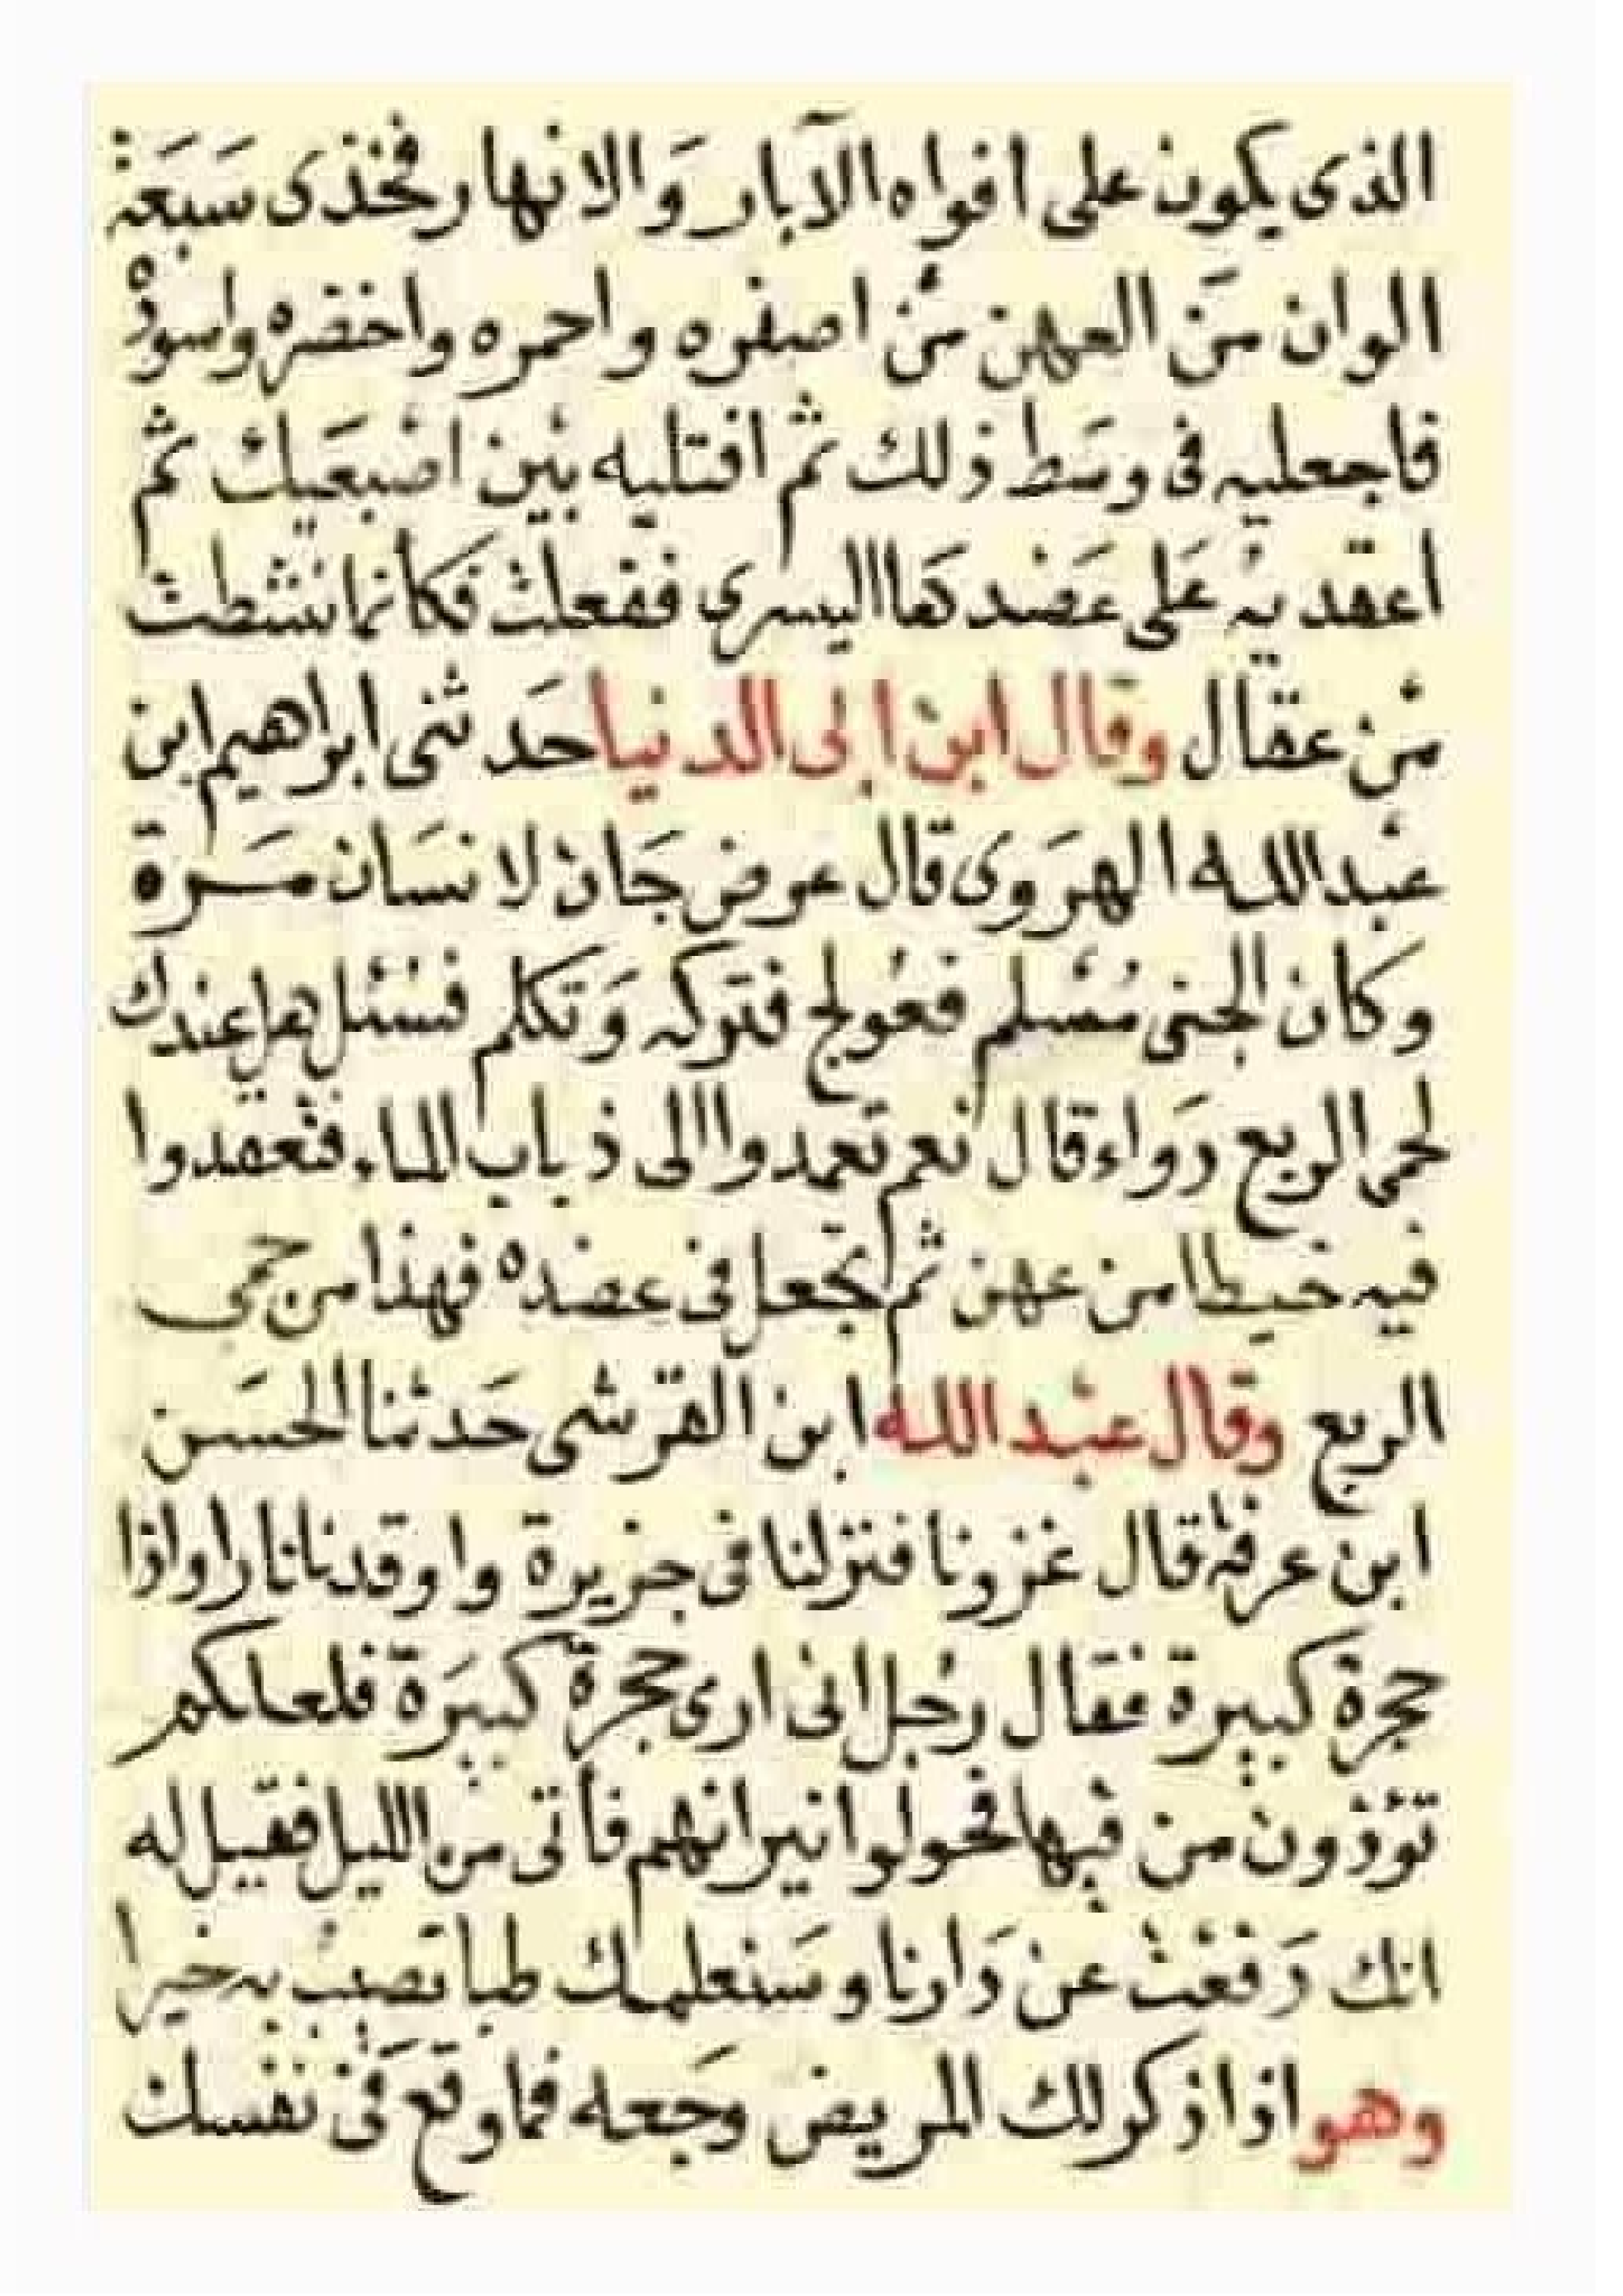 الذى يكون على افواه الآبار وَالانهار فخذى سَبعَة
الوان مَن العهن مَن اصفره واحمره واخضره واسوده
فاجعليه فى وسَط ذلك ثم افتليه بين اصْبعَيك ثم
اعقديه عَلى عَضدهَا اليسرى ففعلت فكانما نشطت
من عقال وقال ابن ابى الدنيا حَدثنى ابراهيم ابن
عبدالله الهرَوى قال عرض جَان لانسَان مَرة
وكان الجنى مُسْلم فعُولج فتركه وَتكلم فسئل هل عندك
لحمى الربع دوَاء قال نعم تعمدوا الى ذباب الماء فتعقدوا
فيه خيطا من عهن ثم تجعل فى عضده فهذا من حمى
الربع وقال عبدالله ابن القرشى حَدثنا الحسَن
ابن عرفة قال غزونا فنزلنا فى جزيرة واوقدنا نارا واذا
حجرة كبيرة فقال رجُل انى ارى حجرة كبيَرة فلعلكم
تؤذون من فيها فحولوا نيرانهم فأتى من الليل فقيل له
انك دَفعْت عن دَارنا وسَنعلمك طبا تصب به خيرا
وهو اذا ذكر لك المريض وَجعه فما وقع فى نفسك